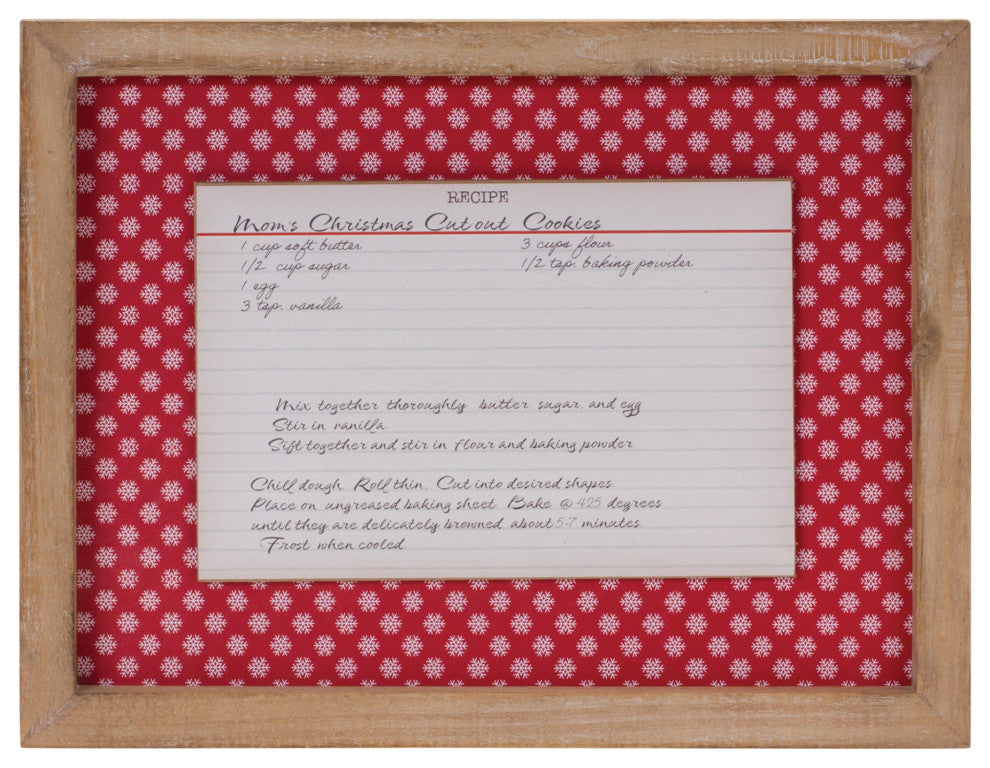 RECIPE
Mom's Christmas Cut out Cookies
1 cup soft butter
1/2 cup sugar
1 egg
3 tsp. vanilla
3 cups flour
1/2 tsp. baking powder
Mix together thoroughly butter, sugar, and egg
Stir in vanilla.
Sift together and stir in flour and baking powder
Chill dough. Roll thin. Cut into desired shapes.
Place on ungreased baking sheet. Bake @ 425 degrees
until they are delicately browned, about 5-7 minutes.
Frost when cooled.